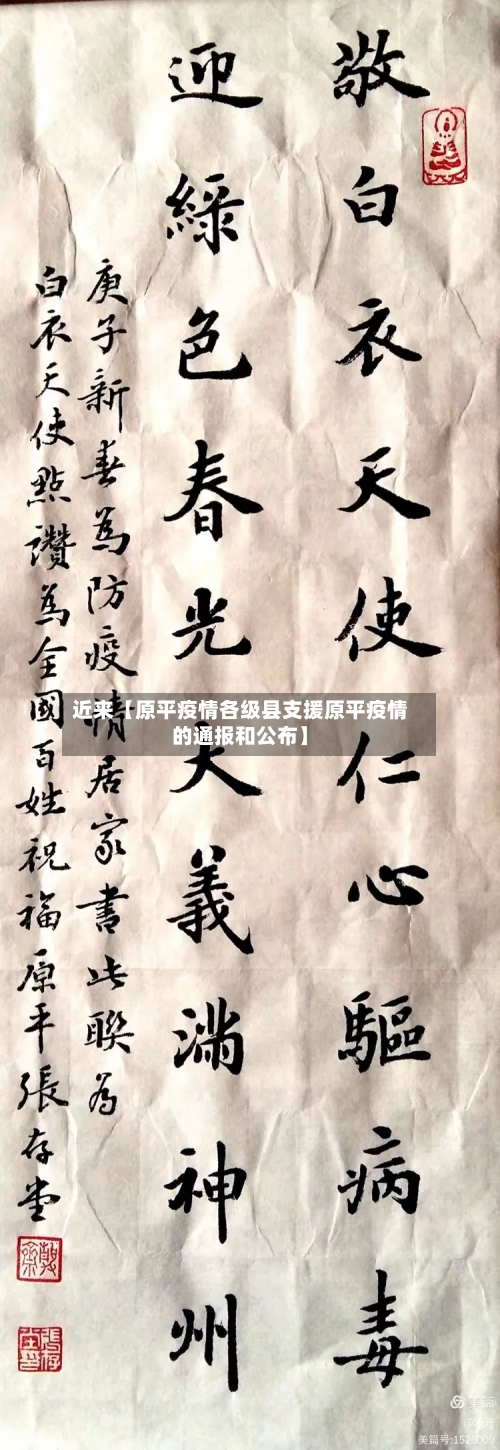 敬白衣天使仁心驅病毒
迎綠色春光大義滿神州
庚子新春為防疫情居家書此聯為
白衣天使點讚為全國百姓祝福原平張存堂
近来【原平疫情各级县支援原平疫情
的通报和公布】
美篇
美篇号:1525009